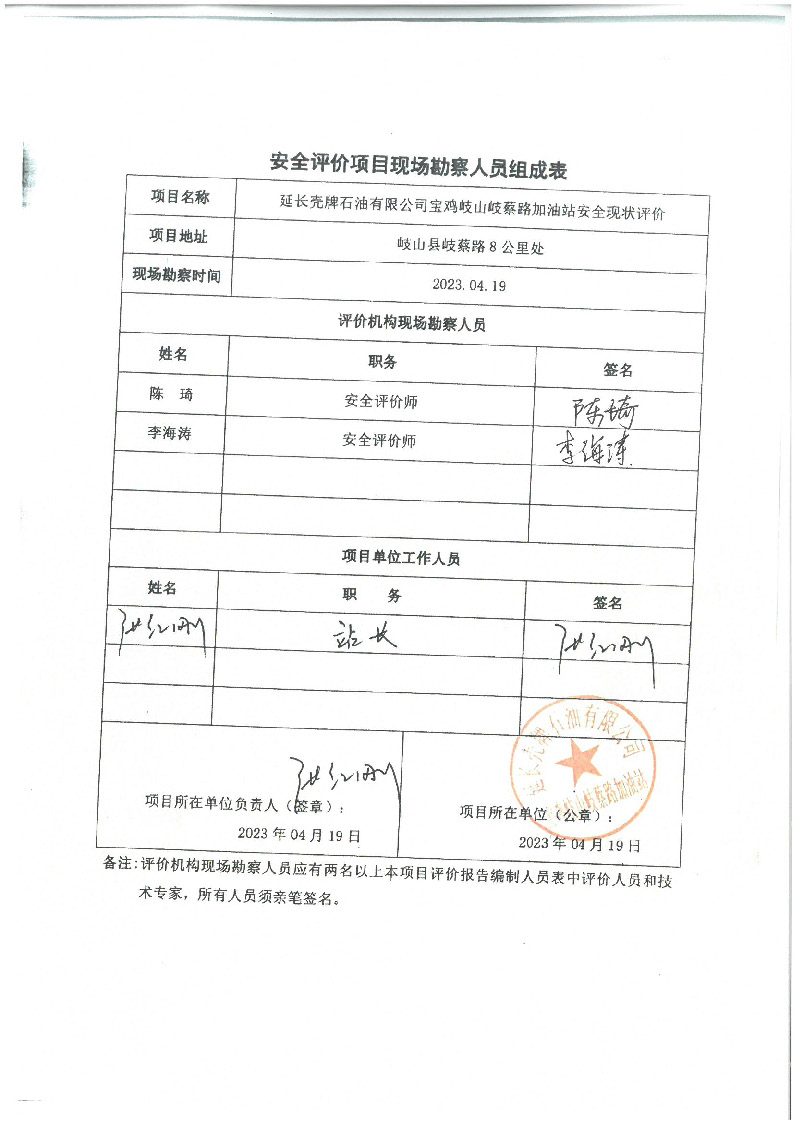 安全评价项目现场勘察人员组成表
项目名称 延长壳牌石油有限公司宝鸡岐山岐蔡路加油站安全现状评价
项目地址 岐山县岐蔡路8公里处
现场勘察时间 2023.04.19
评价机构现场勘察人员
姓名 职务 签名
陈 琦 安全评价师 陈琦
李海涛 安全评价师 李海涛
项目单位工作人员
姓名 职 务 签名
张红刚 站长 张红刚
张红刚
项目所在单位负责人（签章）：
2023年04月19日
延长壳牌石油有限公司
岐山岐蔡路加油站
项目所在单位（公章）：
2023年04月19日
备注：评价机构现场勘察人员应有两名以上本项目评价报告编制人员表中评价人员和技
术专家，所有人员须亲笔签名。